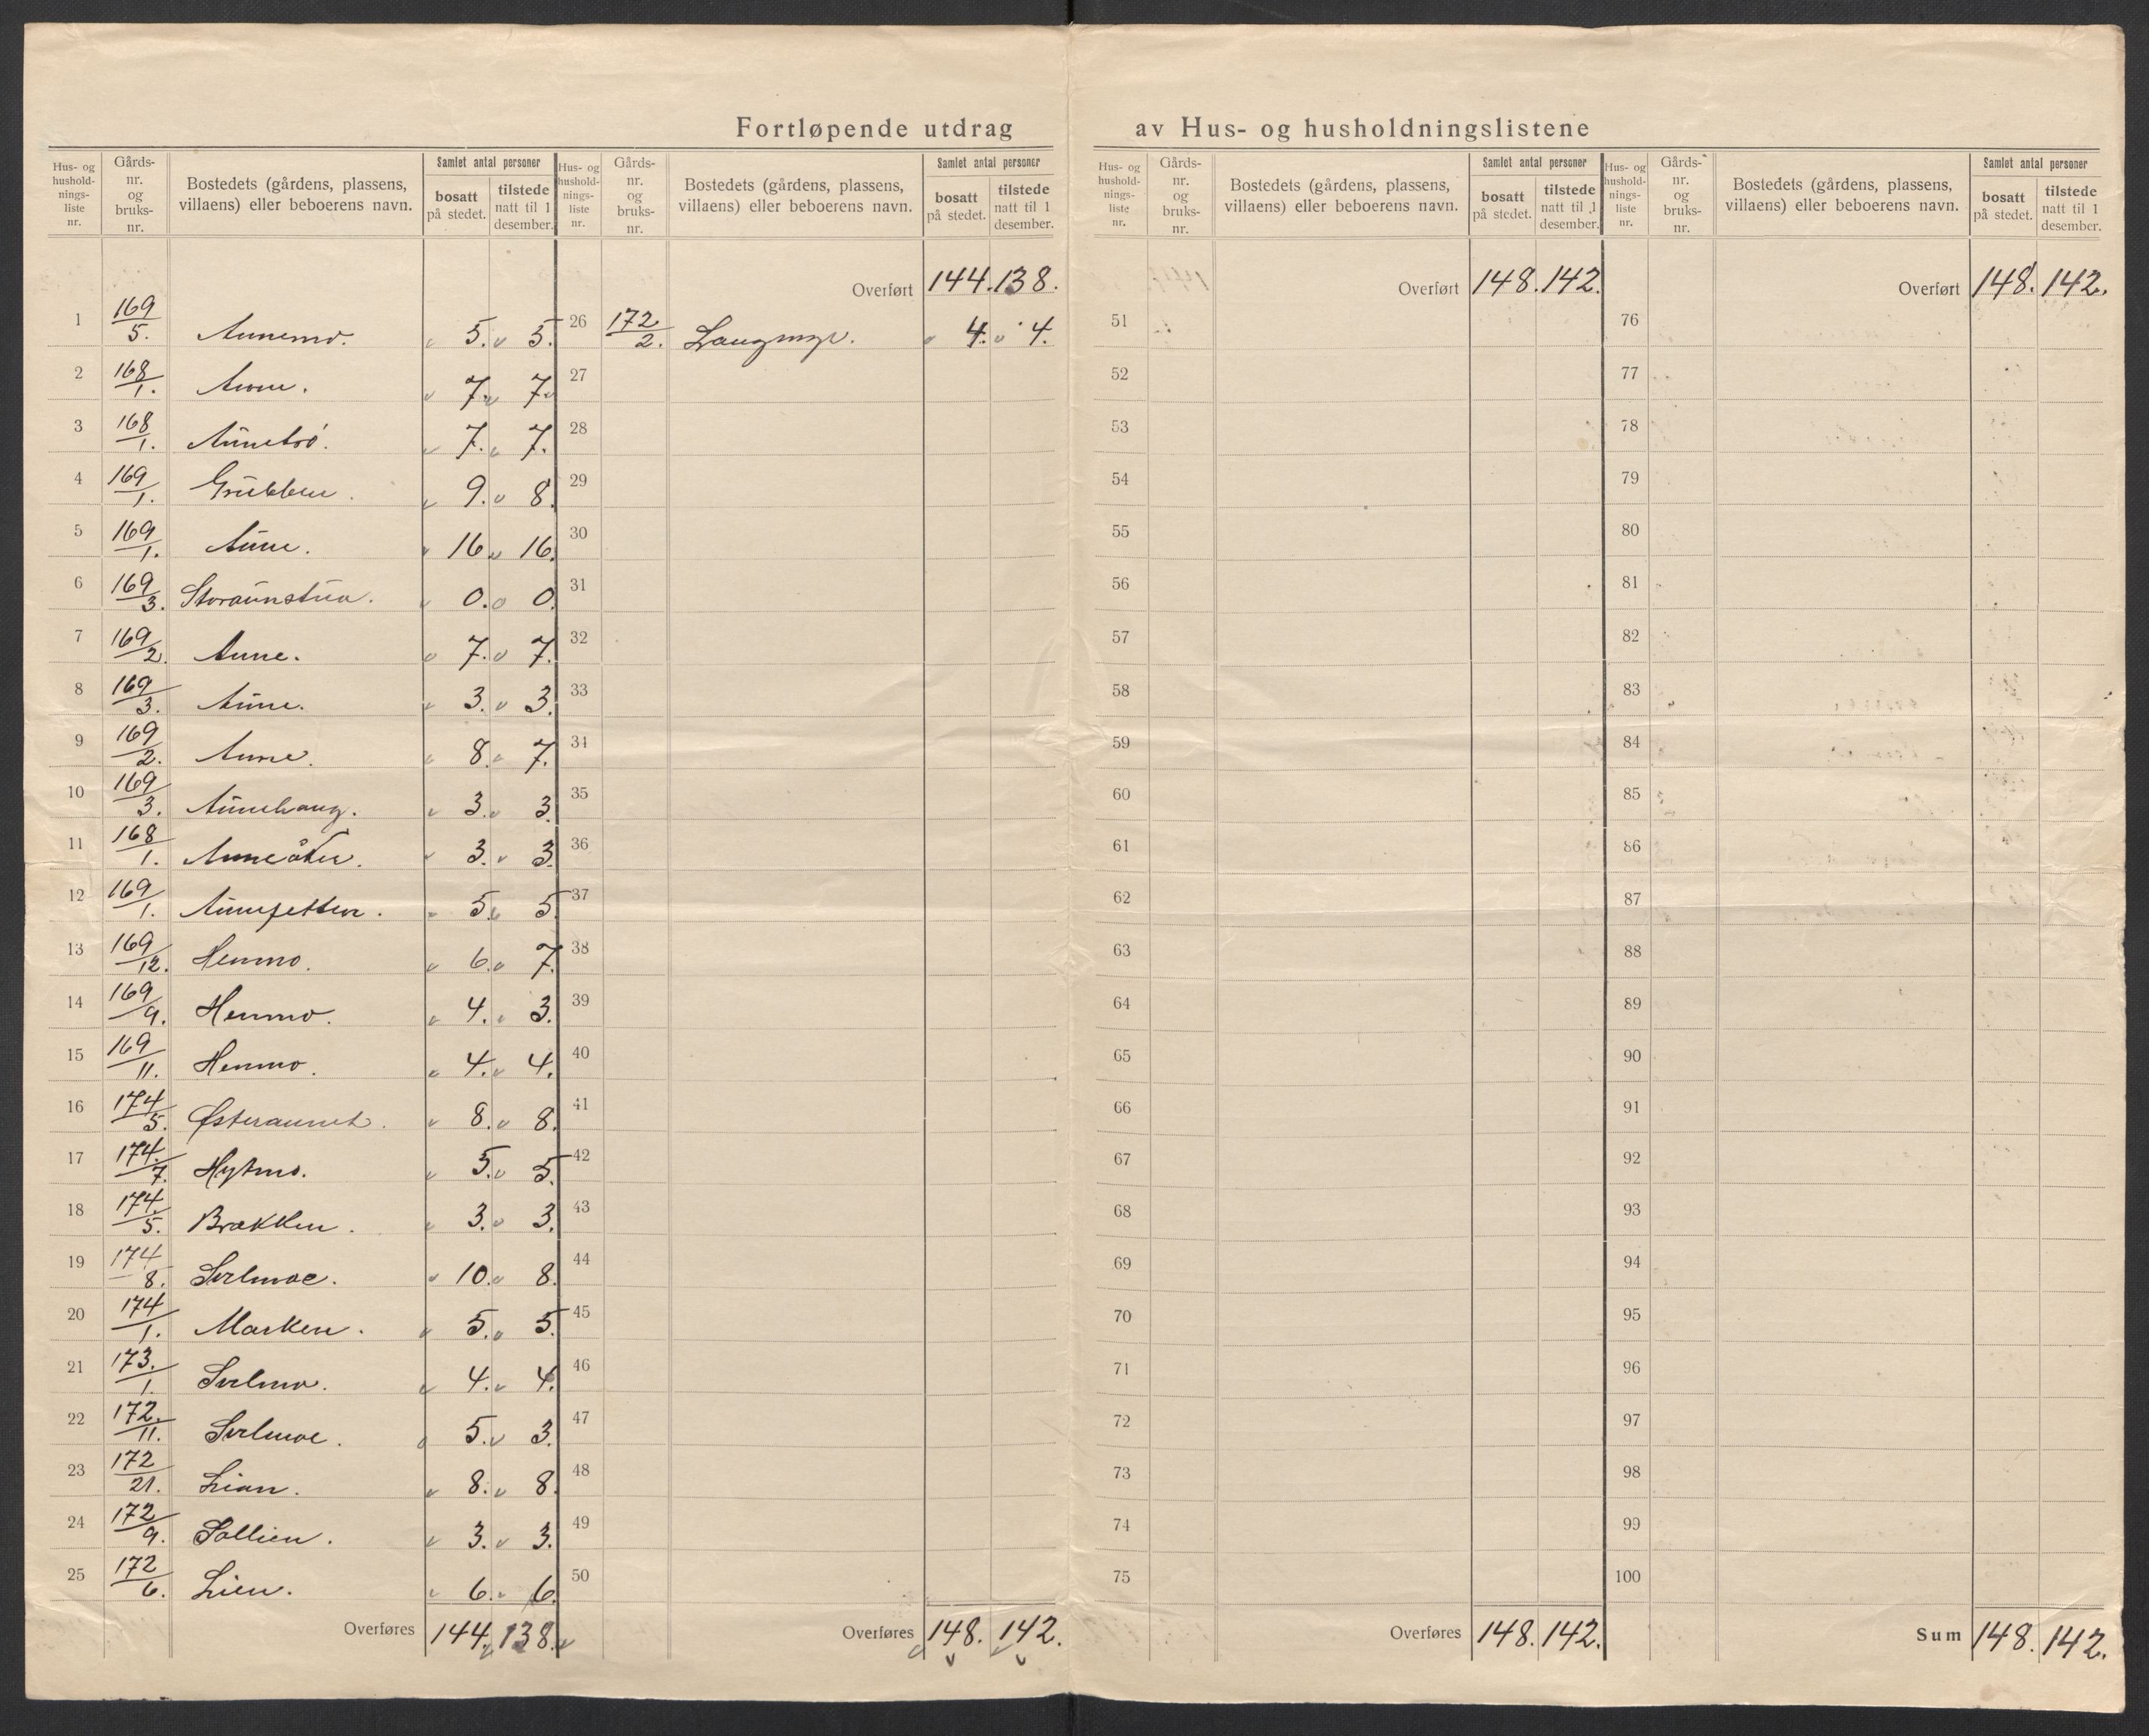 Fortløpende utdrag av Hus- og husholdningslistene
Hus- og husholdnings-liste nr. Gårds-nr. og bruks-nr. Bostedets (gårdens, plassens, villaens) eller beboerens navn. Samlet antal personer bosatt på stedet. tilstede natt til 1 desember.
Hus- og husholdnings-liste nr. Gårds-nr. og bruks-nr. Bostedets (gårdens, plassens, villaens) eller beboerens navn. Samlet antal personer bosatt på stedet. tilstede natt til 1 desember.
Hus- og husholdnings-liste nr. Gårds-nr. og bruks-nr. Bostedets (gårdens, plassens, villaens) eller beboerens navn. Samlet antal personer bosatt på stedet. tilstede natt til 1 desember.
Hus- og husholdnings-liste nr. Gårds-nr. og bruks-nr. Bostedets (gårdens, plassens, villaens) eller beboerens navn. Samlet antal personer bosatt på stedet. tilstede natt til 1 desember.
1 169/5. Aunemo. 5. 5.
2 168/1. Aune. 7. 7.
3 168/1. Aunetrø. 7. 7.
4 169/1. Grubben. 9. 8.
5 169/1. Aune. 16. 16.
6 169/3. Storaunstua. 0. 0.
7 169/2. Aune. 7. 7.
8 169/3. Aune. 3. 3.
9 169/2. Aune. 8. 7.
10 169/3. Aunehaug. 3. 3.
11 168/1. Auneåker. 3. 3.
12 169/1. Aunesetten. 5. 5.
13 169/12. Henmo. 6. 7.
14 169/9. Henmo. 4. 3.
15 169/11. Henmo. 4. 4.
16 174/5. Østeraunet. 8. 8.
17 174/7. Hytmo. 5. 5.
18 174/5. Brækken. 3. 3.
19 174/8. 10. 8.
20 174/1. Marken. 5. 5.
21 173/1. 4. 4.
22 172/11. 5. 3.
23 172/21. Lian. 8. 8.
24 172/9. Sollien. 3. 3.
25 172/6. Lien. 6. 6.
Overføres 144. 138.
Overført 144. 138.
26 172/2. Langmyr. 4. 4.
27
28
29
30
31
32
33
34
35
36
37
38
39
40
41
42
43
44
45
46
47
48
49
50
Overføres 148. 142.
Overført 148. 142.
51
52
53
54
55
56
57
58
59
60
61
62
63
64
65
66
67
68
69
70
71
72
73
74
75
Overføres 148. 142.
Overført 148. 142.
76
77
78
79
80
81
82
83
84
85
86
87
88
89
90
91
92
93
94
95
96
97
98
99
100
Sum 148. 142.